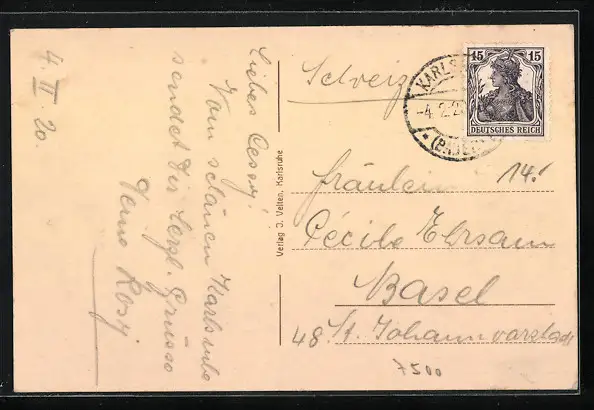 4. II 20.
Liebes Cessy!
Vom schönen Karlsruhe
sendet Dir herzl. Grüsse
Deine Rosy
Verlag J. Velten, Karlsruhe
Schweiz
KARLS
-4.2.20
(BADEN)
15 15
DEUTSCHES REICH
14.-
Fräulein
Cécile Ehrsam
Basel
48 St. Johannvorstadt
7500